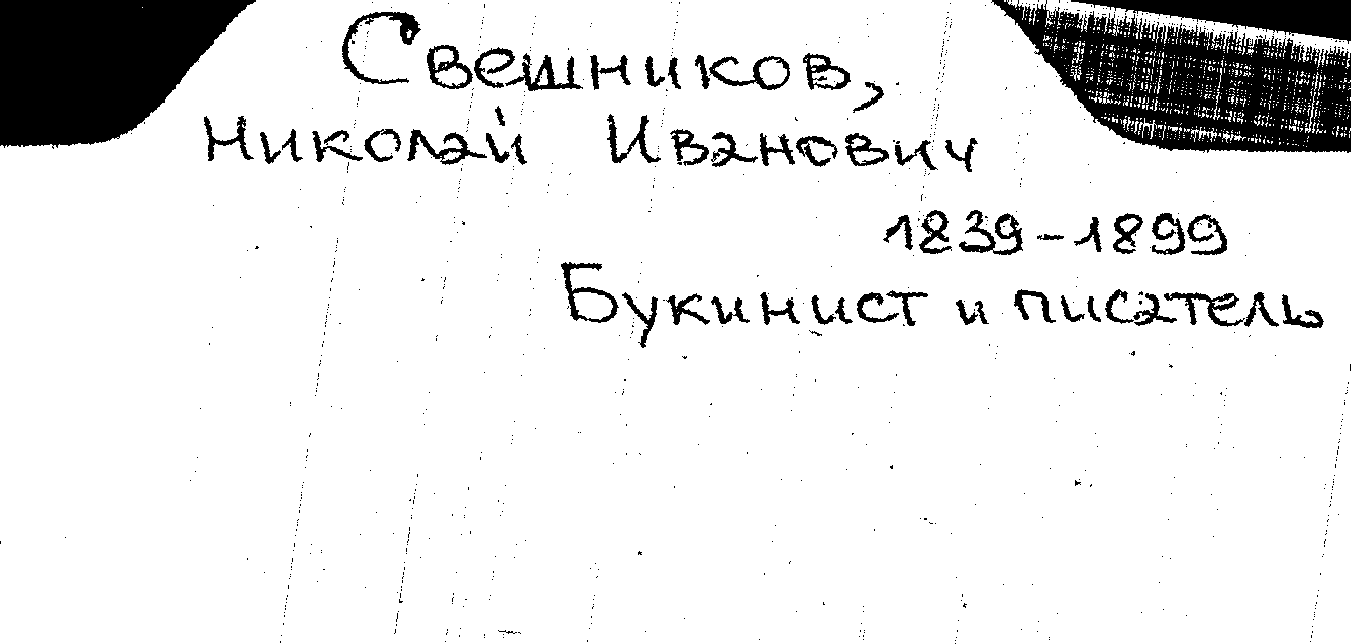 Свешников,
Николай Иванович
1839-1899
Букинист и писатель